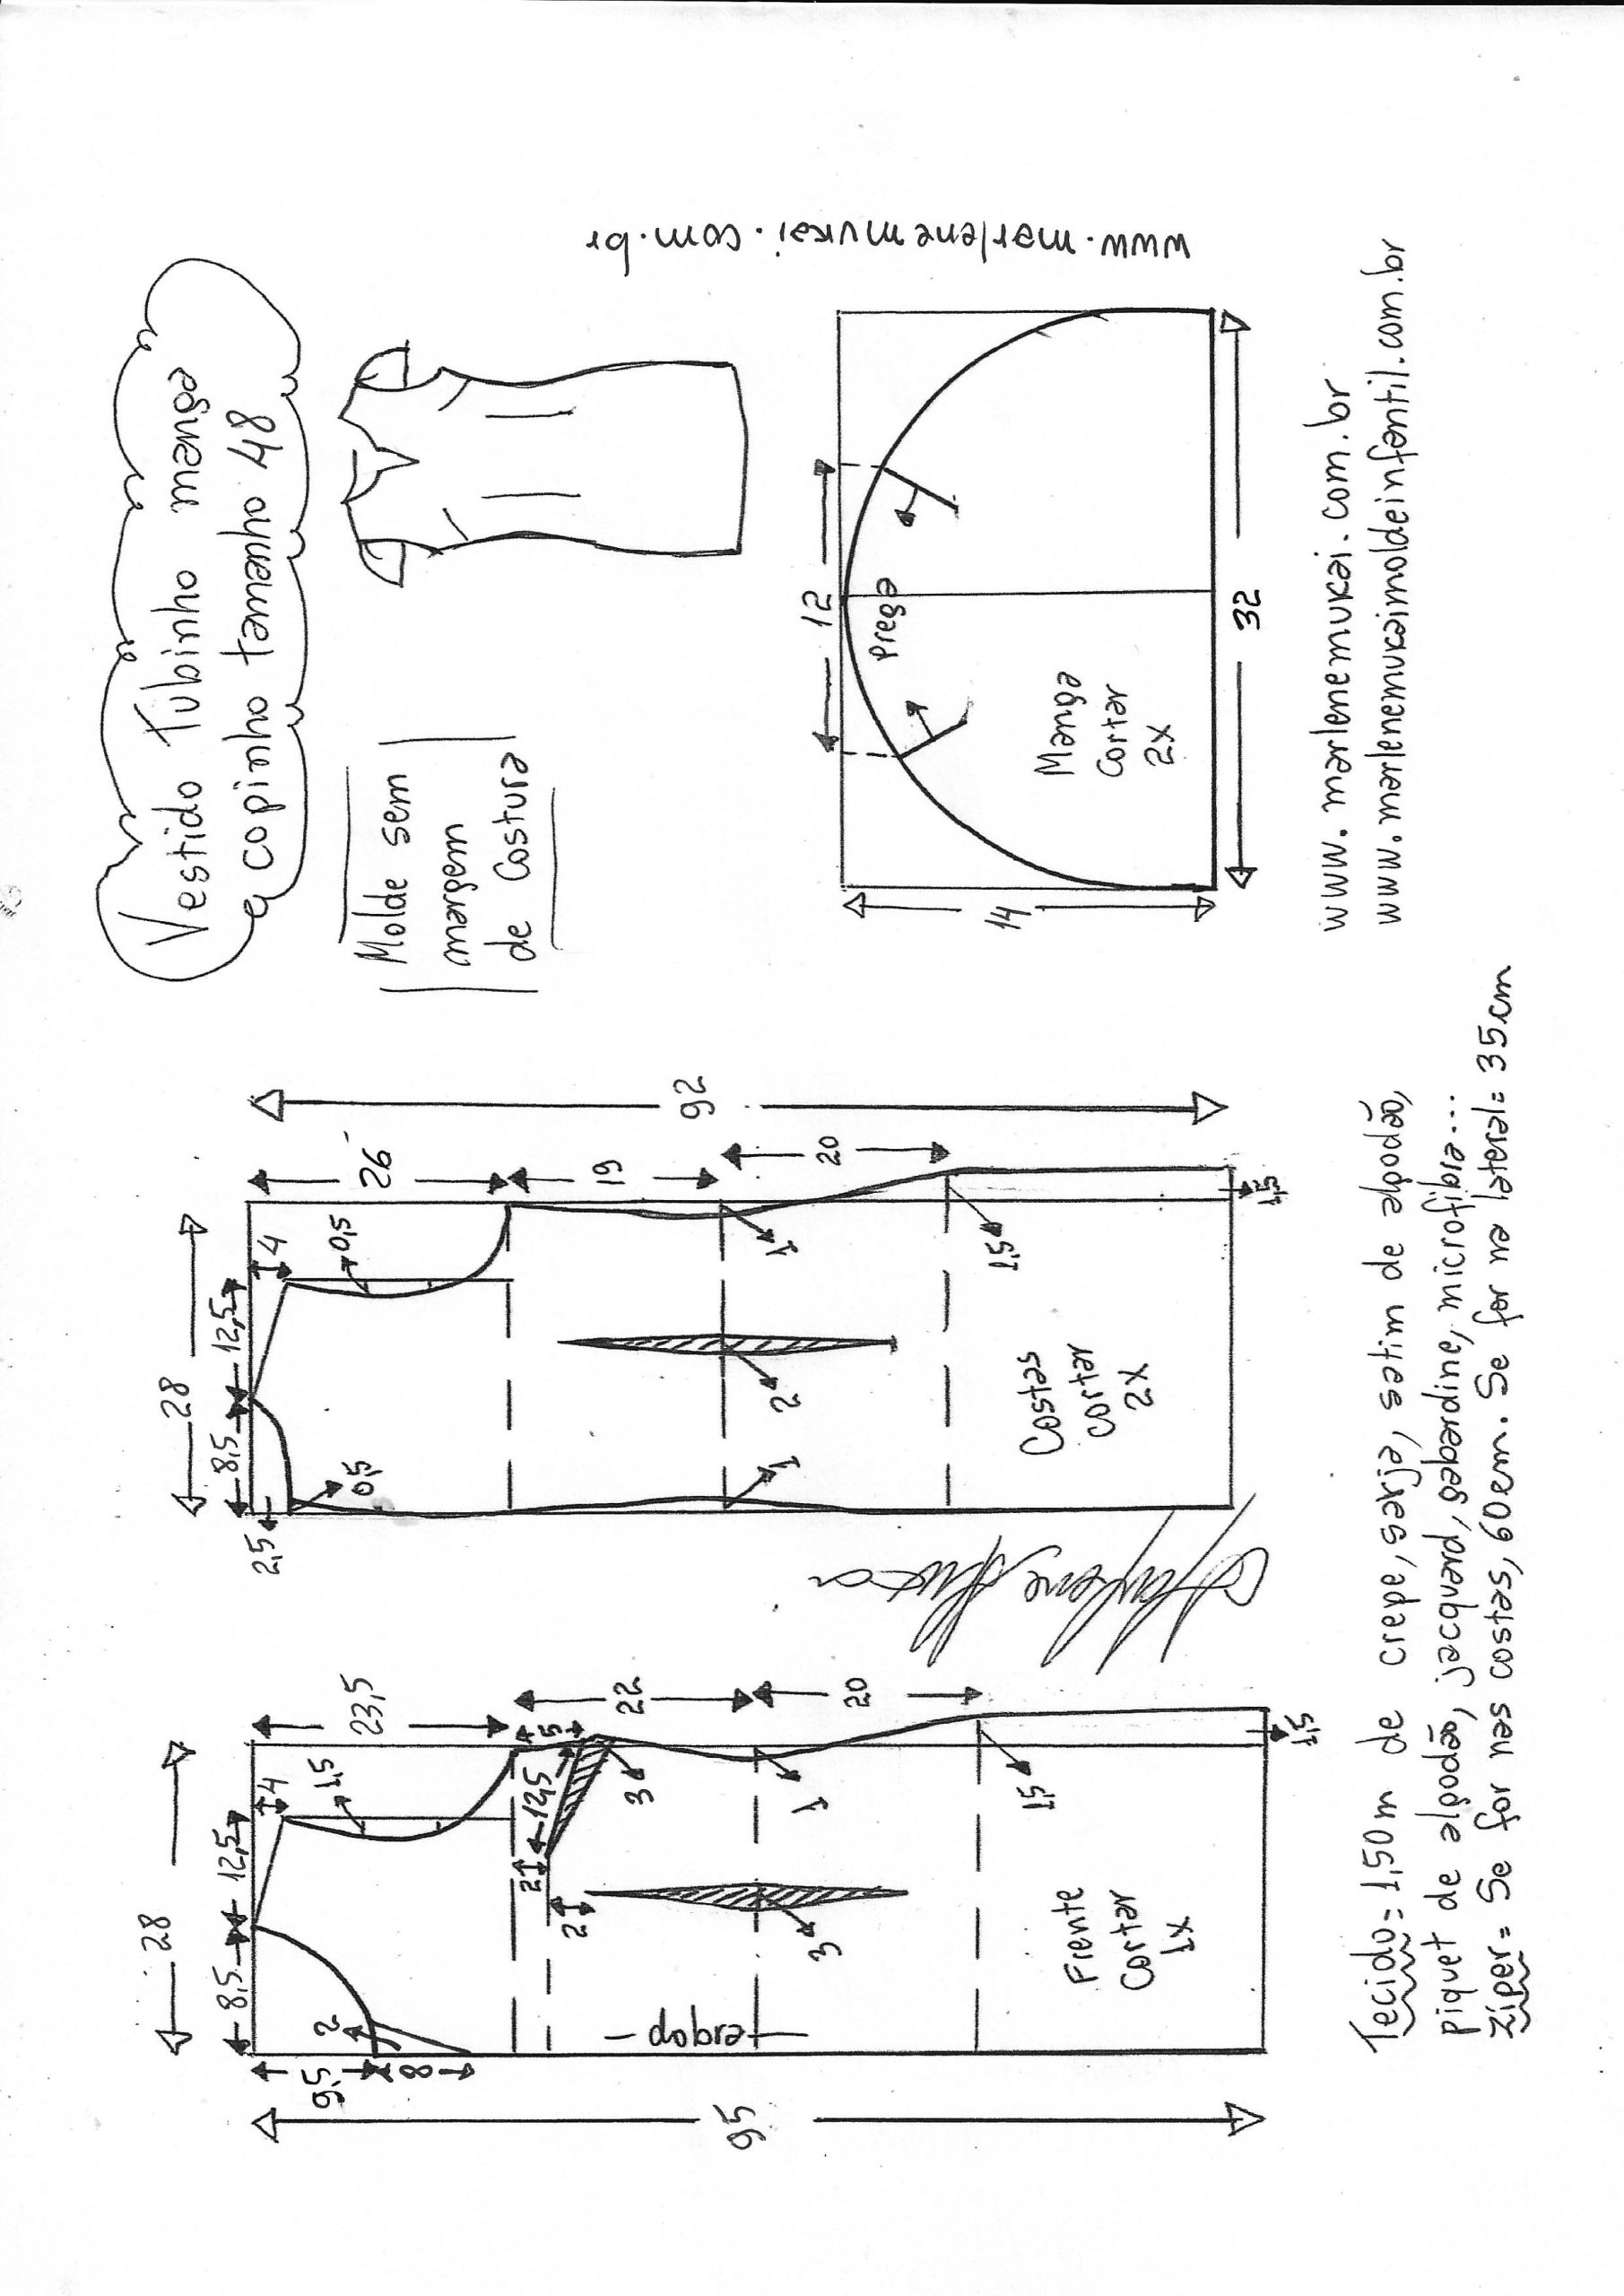 Vestido Tubinho manga
copinho tamanho 48
Molde sem
margem
de Costura
28
8,5
12,5
4
1,5
2
9,5
8
23,5
5
12,5
2
2
3
22
1
3
20
1,5
1,5
95
dobra
Frente
Cortar
1X
28
8,5
12,5
4
2,5
0,5
0,5
26
19
20
92
1
1
2
1,5
1,5
Costas
Cortar
2X
Marlene Mukai
12
Prega
Manga
Cortar
2X
14
32
www.marlenemukai.com.br
www.marlenemukai.com.br
www.marlenemukaimoldeinfantil.com.br
Tecido= 1,50m de crepe, sarja, satim de algodão,
piquet de algodão, jacquard, gabardine, microfibra...
Zíper= Se for nas costas, 60cm. Se for na lateral= 35cm